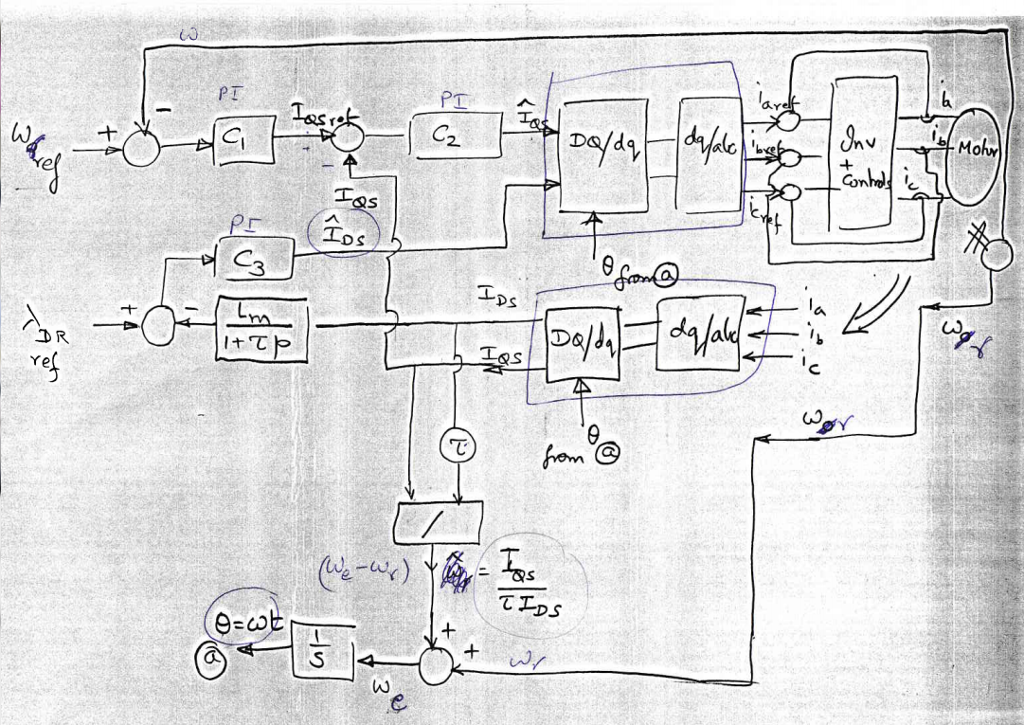 ω
PI
PI
ω ref
+
−
C1
IQS ref
−
C2
ÎQS
DQ/dq
dq/abc
ia ref
ib ref
ic ref
Inv
+
Controls
ia
ib
ic
Motor
IQS
PI
ÎDS
C3
θ from ⓐ
λDR
ref
+
−
Lm
1+τp
IDS
IQS
DQ/dq
dq/abc
ia
ib
ic
ωr
ωr
θ
from ⓐ
τ
/
(ωe−ωr)
= IQS
τIDS
θ=ωt
ⓐ
1
S
ωe
+
+
ωr